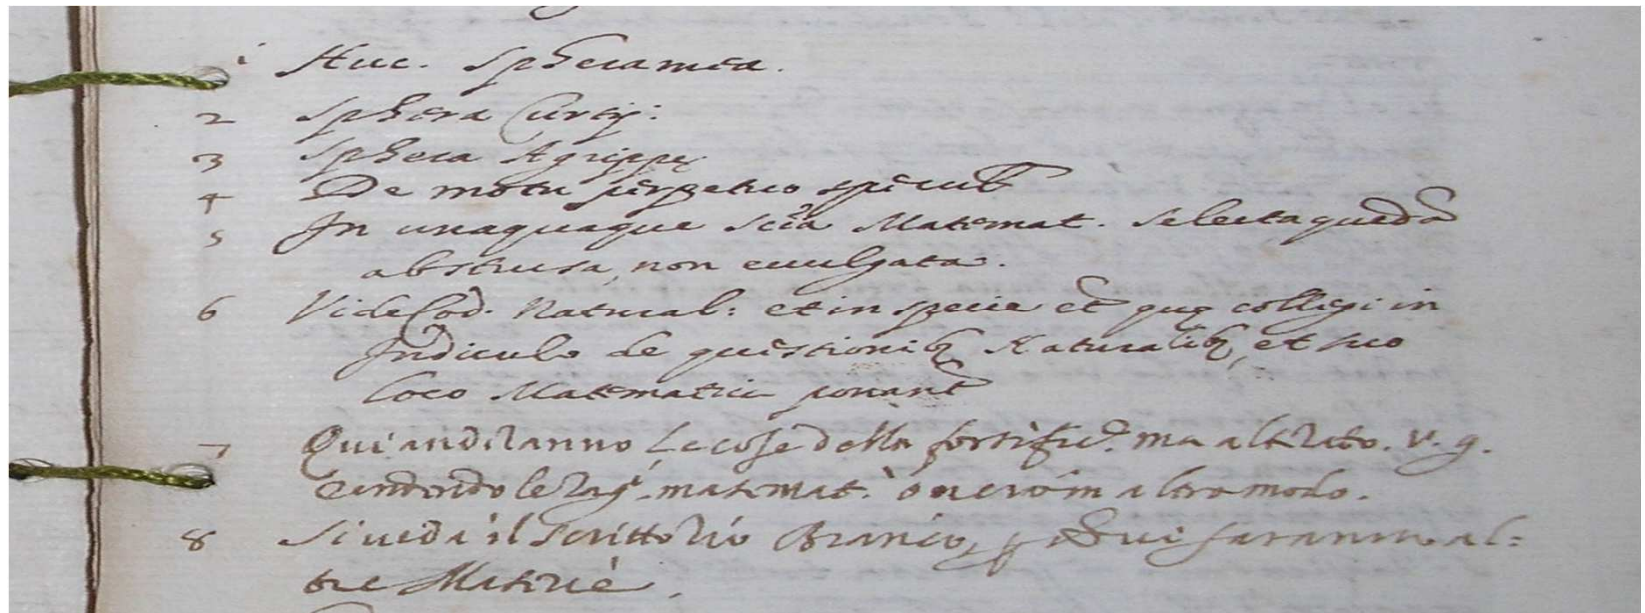 1 Huc. Sphera mea.
2 Sphera Curtij:
3 Sphera Agrippę
4 De motu perpetuo specul
5 In unaquaque scia Matemat. selecta quedã
abstrusa, non euulgata.
6 Vide Cod. Natural: et in specie et quę collegi in
Indiculo de questionib Naturalib, et suo
loco Matematicu ponant
7 Qui andranno le cose della fortific. ma alterato. v. g.
rendendo le rag. matemat. ò uero in altro modo.
8 Si ueda il Scrittorio Bianco, Qui saranno al=
tre Materie.